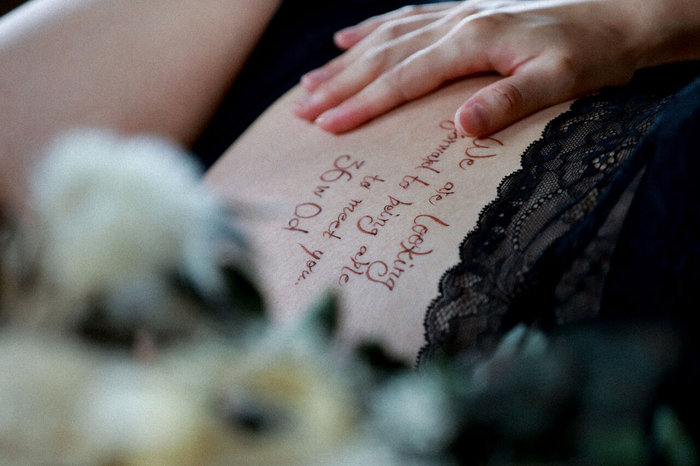 We are looking
forward to being able
to meet you...
36w0d